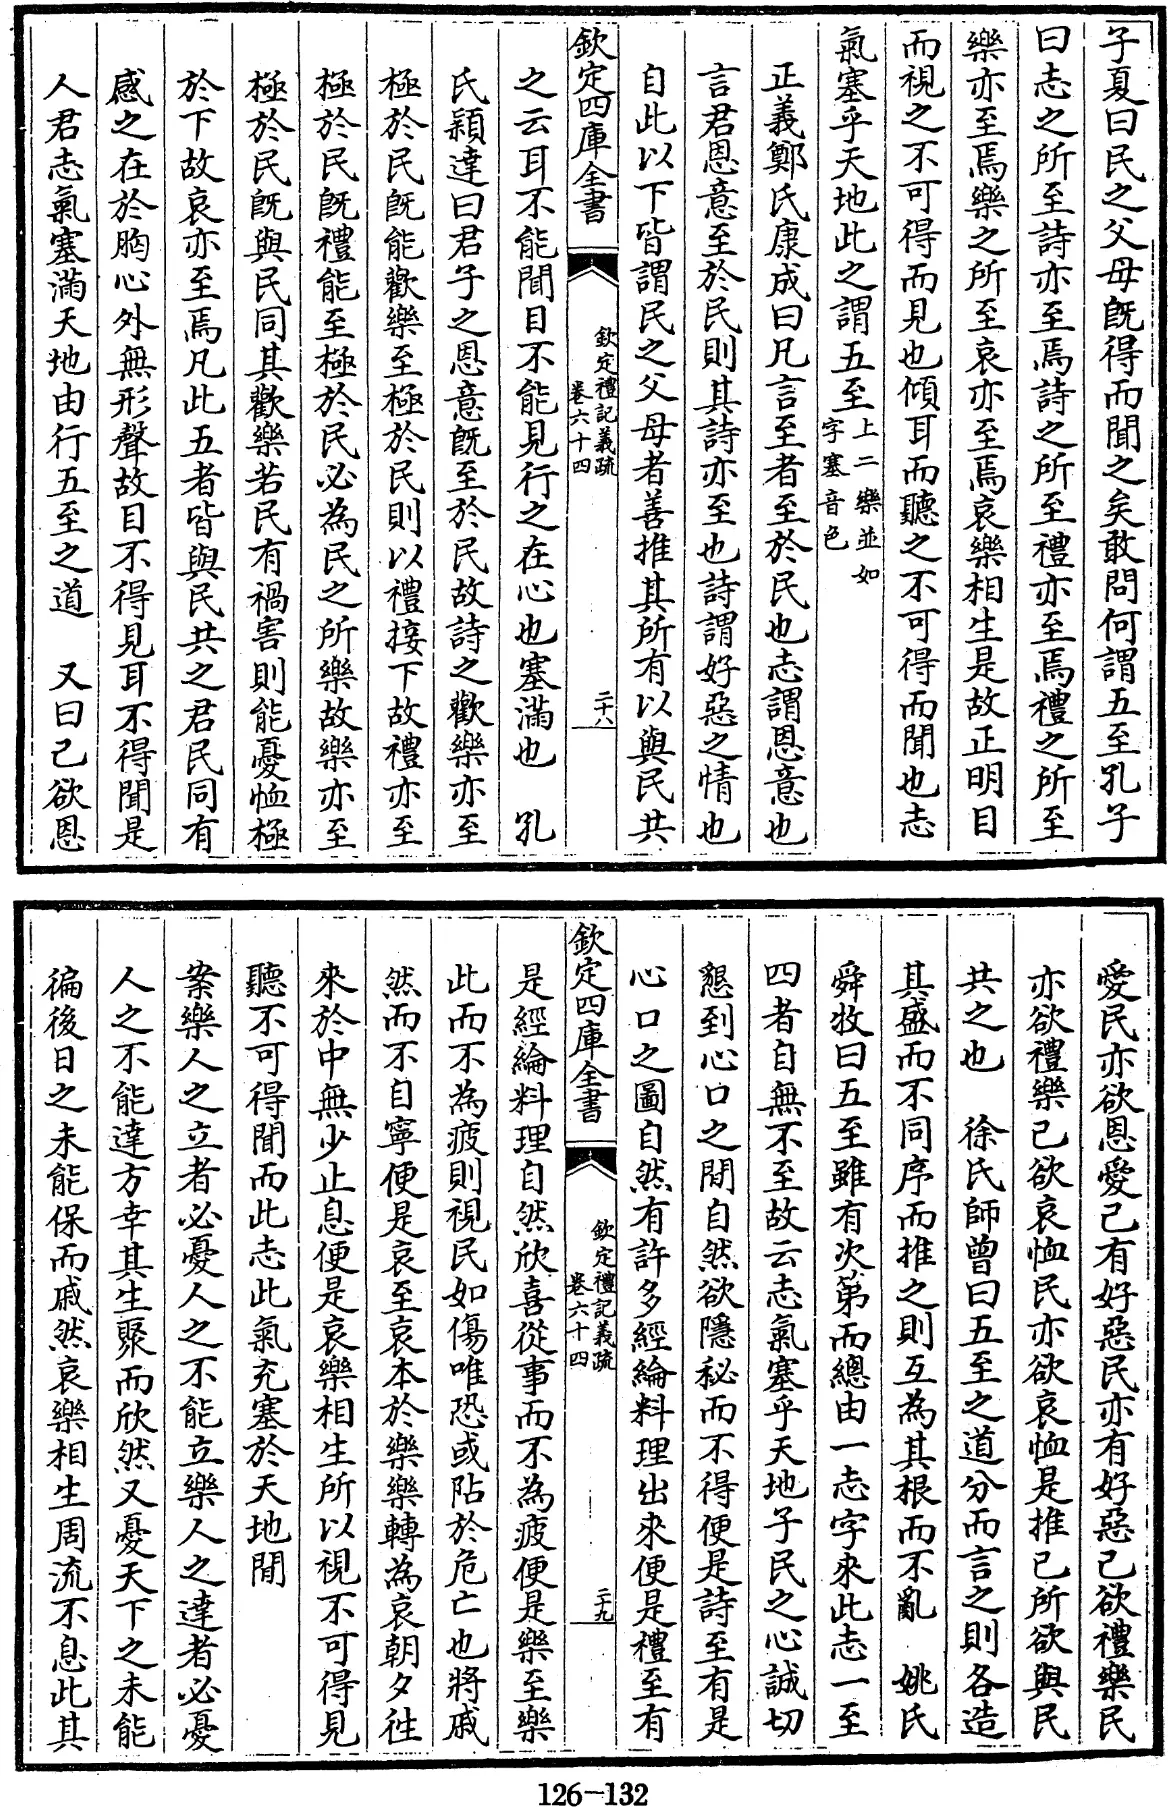 子夏曰民之父母既得而聞之矣敢問何謂五至孔子
曰志之所至詩亦至焉詩之所至禮亦至焉禮之所至
樂亦至焉樂之所至哀亦至焉哀樂相生是故正明目
而視之不可得而見也傾耳而聽之不可得而聞也志
氣塞乎天地此之謂五至上二樂並如
字塞音色
正義鄭氏康成曰凡言至者至於民也志謂恩意也
言君恩意至於民則其詩亦至也詩謂好惡之情也
自此以下皆謂民之父母者善推其所有以與民共
欽定四庫全書
欽定禮記義疏
卷六十四
二十八
之云耳不能聞目不能見行之在心也塞滿也 孔
氏穎達曰君子之恩意既至於民故詩之歡樂亦至
極於民既能歡樂至極於民則以禮接下故禮亦至
極於民既禮能至極於民必為民之所樂故樂亦至
極於民既與民同其歡樂若民有禍害則能憂恤極
於下故哀亦至焉凡此五者皆與民共之君民同有
感之在於胸心外無形聲故目不得見耳不得聞是
人君志氣塞滿天地由行五至之道 又曰己欲恩
愛民亦欲恩愛己有好惡民亦有好惡己欲禮樂民
亦欲禮樂己欲哀恤民亦欲哀恤是推己所欲與民
共之也 徐氏師曾曰五至之道分而言之則各造
其盛而不同序而推之則互為其根而不亂 姚氏
舜牧曰五至雖有次第而總由一志字來此志一至
四者自無不至故云志氣塞乎天地子民之心誠切
懇到心口之間自然欲隱秘而不得便是詩至有是
心口之圖自然有許多經綸料理出來便是禮至有
欽定四庫全書
欽定禮記義疏
卷六十四
二十九
是經綸料理自然欣喜從事而不為疲便是樂至樂
此而不為疲則視民如傷唯恐或阽於危亡也將戚
然而不自寧便是哀至哀本於樂樂轉為哀朝夕往
來於中無少止息便是哀樂相生所以視不可得見
聽不可得聞而此志此氣充塞於天地間
案樂人之立者必憂人之不能立樂人之達者必憂
人之不能達方幸其生聚而欣然又憂天下之未能
徧後日之未能保而戚然哀樂相生周流不息此其
126-132